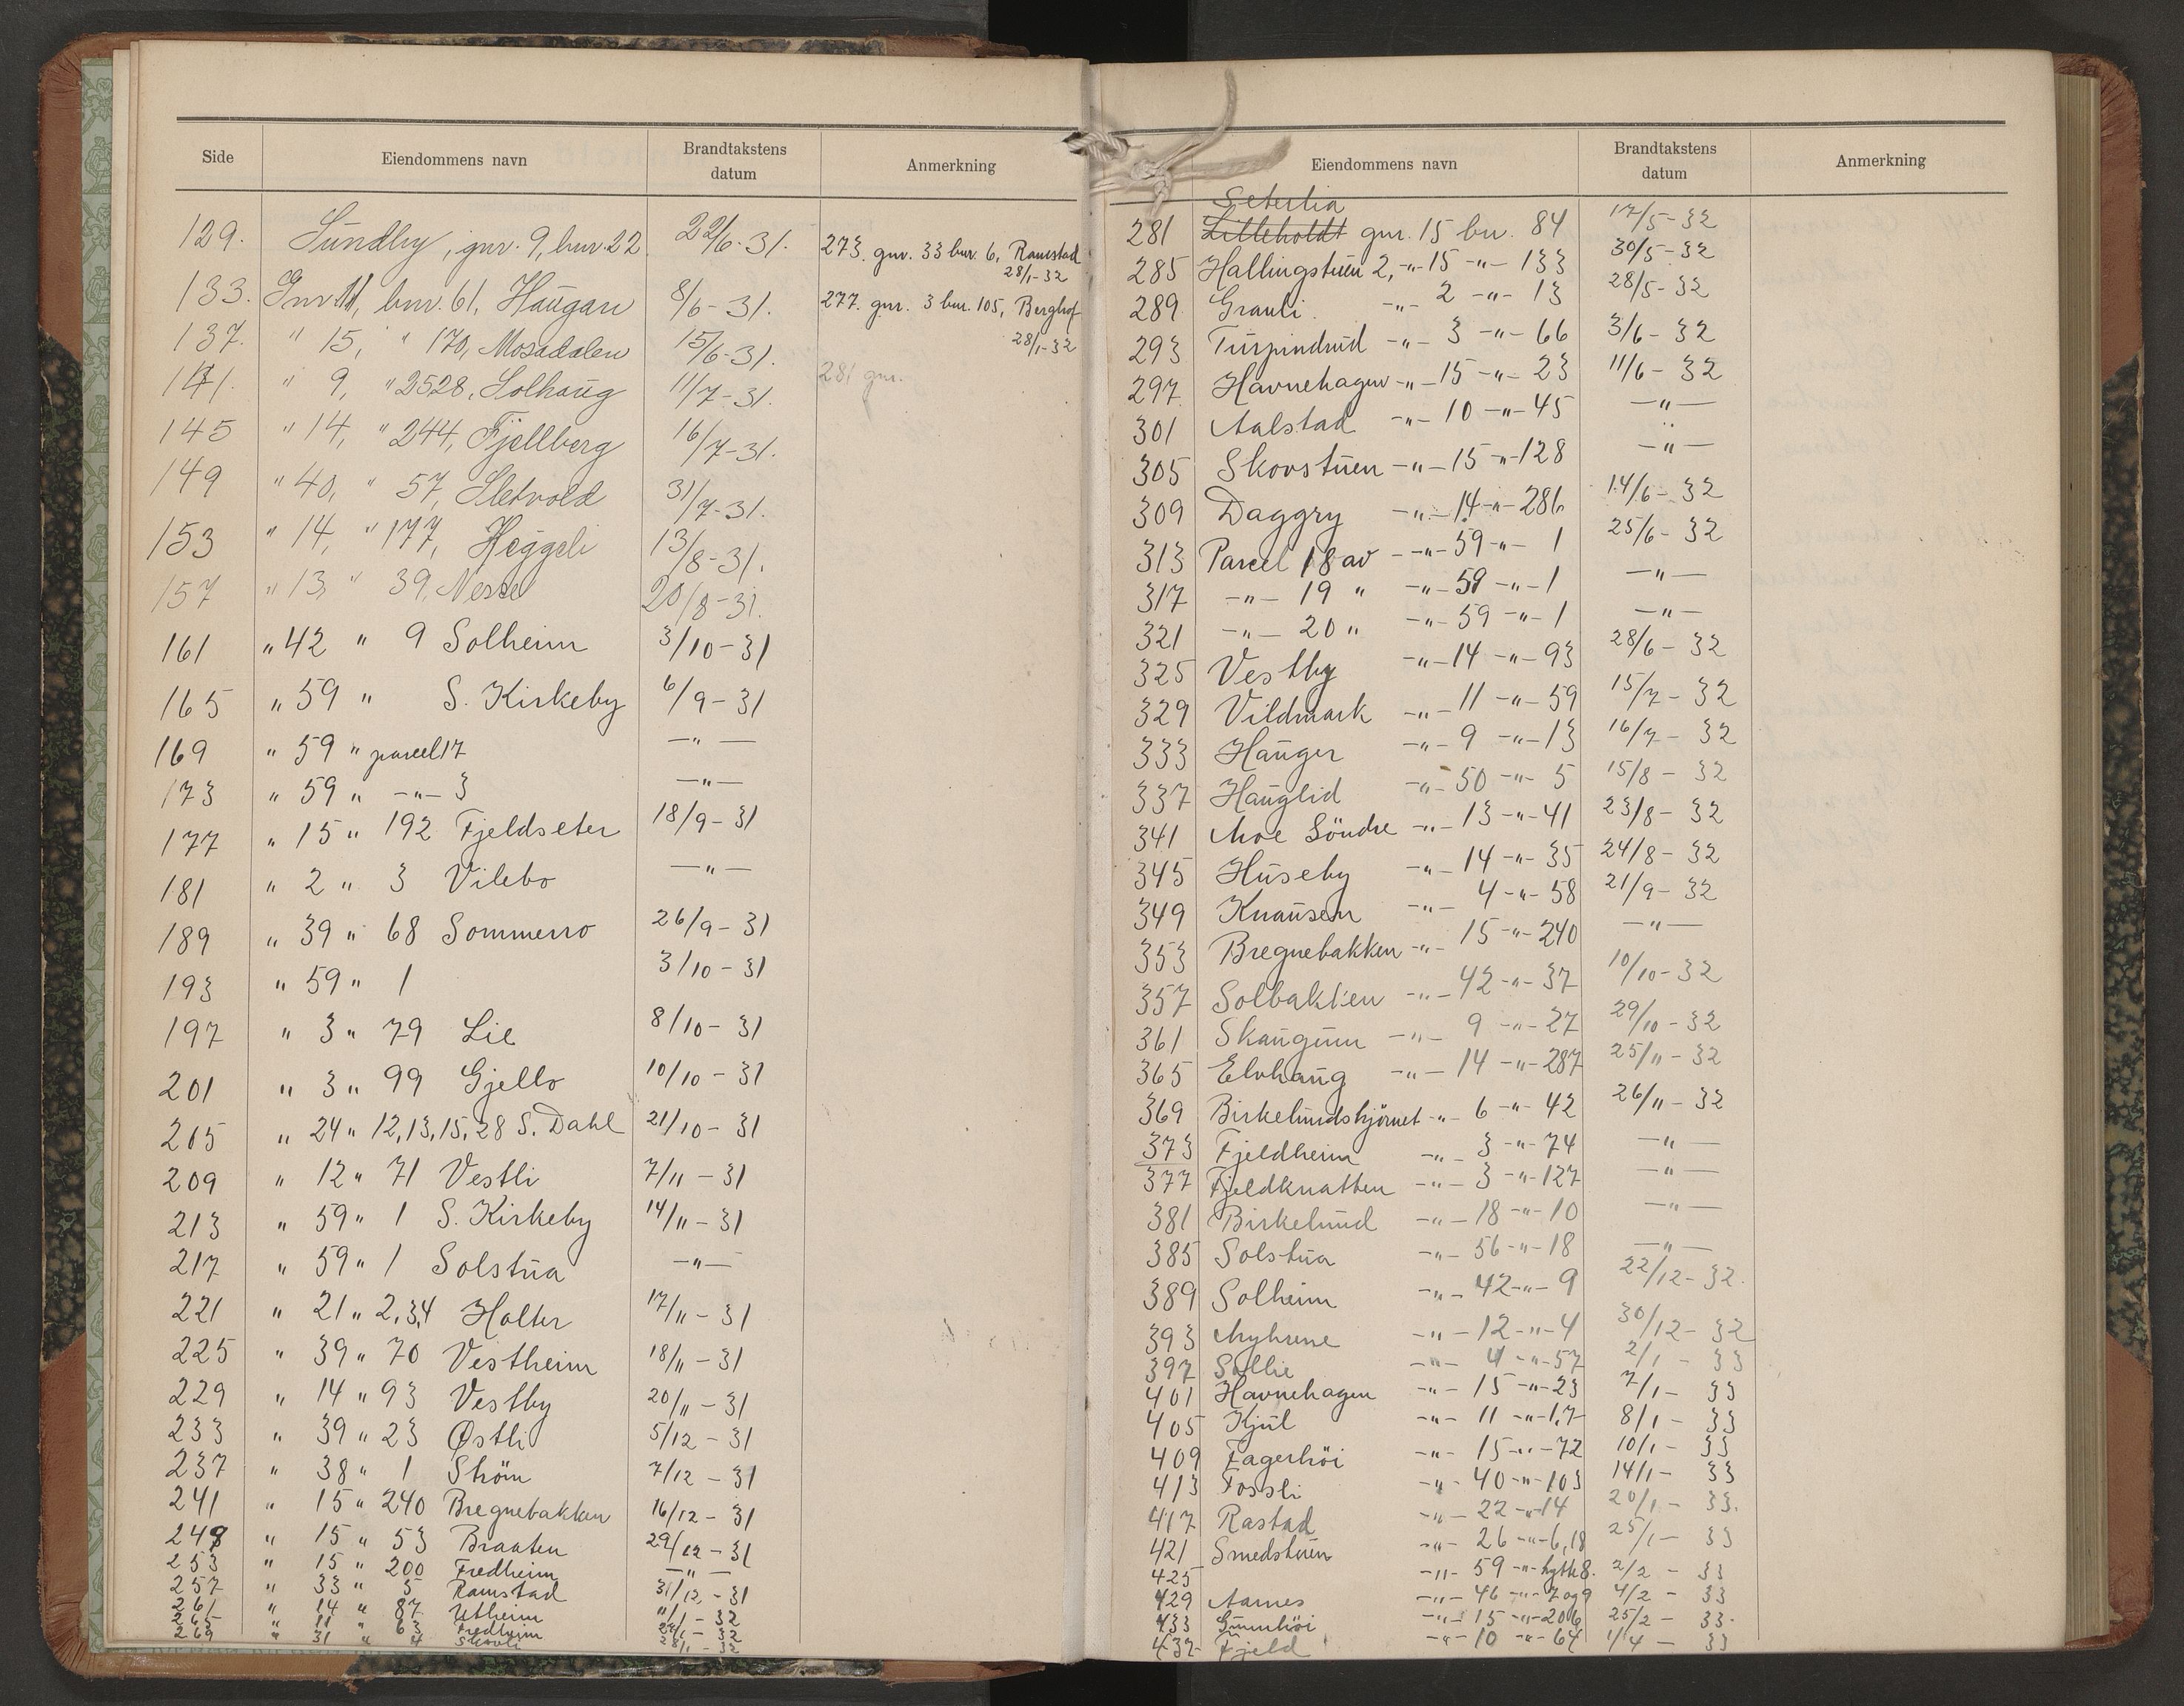 Side Eiendommens navn Brandtakstens datum Anmerkning
129. Sundby, gnr. 9, bnr. 22 22/6-31. 273. gnr. 33 bnr. 6, Ramstad 28/1-32
133. Gnr 11, bnr. 61, Haugan 8/6-31. 277. gnr. 3 bnr. 105, Berghof 28/1-32
137. " 15, " 170, Mosadalen 15/6-31.
141. " 9, " 2528, Solhaug 11/7-31. 281 gnr.
145 " 14, " 244, Fjellberg 16/7-31.
149 " 40, " 57, Sletvold 31/7-31.
153 " 14, " 177, Heggeli 13/8-31.
157 " 13, " 39, Nesse 20/8-31.
161 " 42 " 9 Solheim 3/10-31
165 " 59 " S. Kirkeby 6/9-31
169 " 59 " parcel 17 —"—
173 " 59 " —"— 3 —"—
177 " 15 " 192 Fjeldseter 18/9-31
181 " 2 " 3 Vilebo —"—
189 " 39 " 68 Sommerro 26/9-31
193 " 59 " 1 3/10-31
197 " 3 " 79 Lie 8/10-31
201 " 3 " 99 Gjello 10/10-31
205 " 24 " 12,13,15,28 S. Dahl 21/10-31
209 " 12 " 71 Vestli 7/11-31
213 " 59 " 1 S. Kirkeby 14/11-31
217 " 59 " 1 Solstua —"—
221 " 21 " 2,3,4 Holter 17/11-31
225 " 39 " 70 Vestheim 18/11-31
229 " 14 " 93 Vestby 20/11-31
233 " 39 " 23 Østli 5/12-31
237 " 38 " 1 Strøm 7/12-31
241 " 15 " 240 Bregnebakken 16/12-31
249 " 15 " 53 Braaten 29/12-31
253 " 15 " 200 Fredheim —"—
257 " 33 " 5 Ramstad 31/12-31
261 " 14 " 87 Utheim 11/1-32
265 " 11 " 63 Fredheim 28/1-32
269 " 31 " 4 Skovli 28/1-32
Eiendommens navn Brandtakstens datum Anmerkning
Seterlia
281 Litleholdt gnr. 15 bn. 84 17/5-32
285 Hallingstuen 2, -"- 15 -"- 133 30/5-32
289 Grauli -"- 2 -"- 13 28/5-32
293 Turpindrud -"- 3 -"- 66 3/6-32
297 Havnehagen -"- 15 -"- 23 11/6-32
301 Aalstad -"- 10 -"- 45 —"—
305 Skovstuen -"- 15 -"- 128 —"—
309 Daggry -"- 14 -"- 286 14/6-32
313 Parcel 18 av -"- 59 -"- 1 25/6-32
317 -"- 19 " -"- 59 -"- 1 —"—
321 -"- 20 " -"- 59 -"- 1 —"—
325 Vestby -"- 14 -"- 93 28/6-32
329 Vildmark -"- 11 -"- 59 15/7-32
333 Hauger -"- 9 -"- 13 16/7-32
337 Hauglid -"- 50 -"- 5 15/8-32
341 Moe Söndre -"- 13 -"- 41 23/8-32
345 Huseby -"- 14 -"- 35 24/8-32
349 Knausen -"- 4 -"- 58 21/9-32
353 Bregnebakken -"- 15 -"- 240 —"—
357 Solbakken -"- 42 -"- 37 10/10-32
361 Skaugum -"- 9 -"- 27 29/10-32
365 Elvhaug -"- 14 -"- 287 25/11-32
369 Birkelundshjörnet -"- 6 -"- 42 26/11-32
373 Fjeldheim -"- 3 -"- 74 —"—
377 Fjeldknatten -"- 3 -"- 127 —"—
381 Birkelund -"- 18 -"- 10 —"—
385 Solstua -"- 56 -"- 18 —"—
389 Solheim -"- 42 -"- 9 22/12-32.
393 Myhrene -"- 12 -"- 4 30/12-32
397 Sollie -"- 4 -"- 57 2/1-33
401 Havnehagen -"- 15 -"- 23 7/1-33
405 Kjul -"- 11 -"- 1,7 8/1-33
409 Fagerhöi -"- 15 -"- 72 10/1-33
413 Fossli -"- 40 -"- 103 14/1-33
417 Rastad -"- 22 -"- 14 20/1-33.
421 Smedstuen -"- 26 -"- 6,18 25/1-33
425 -"- 59 -"- hytte 8. 2/2-33
429 Aarnes -"- 46 -"- 7 og 9 4/2-33
433 -"- 15 -"- 206 25/2-33.
437 Fjeld -"- 10 -"- 64 1/4-33